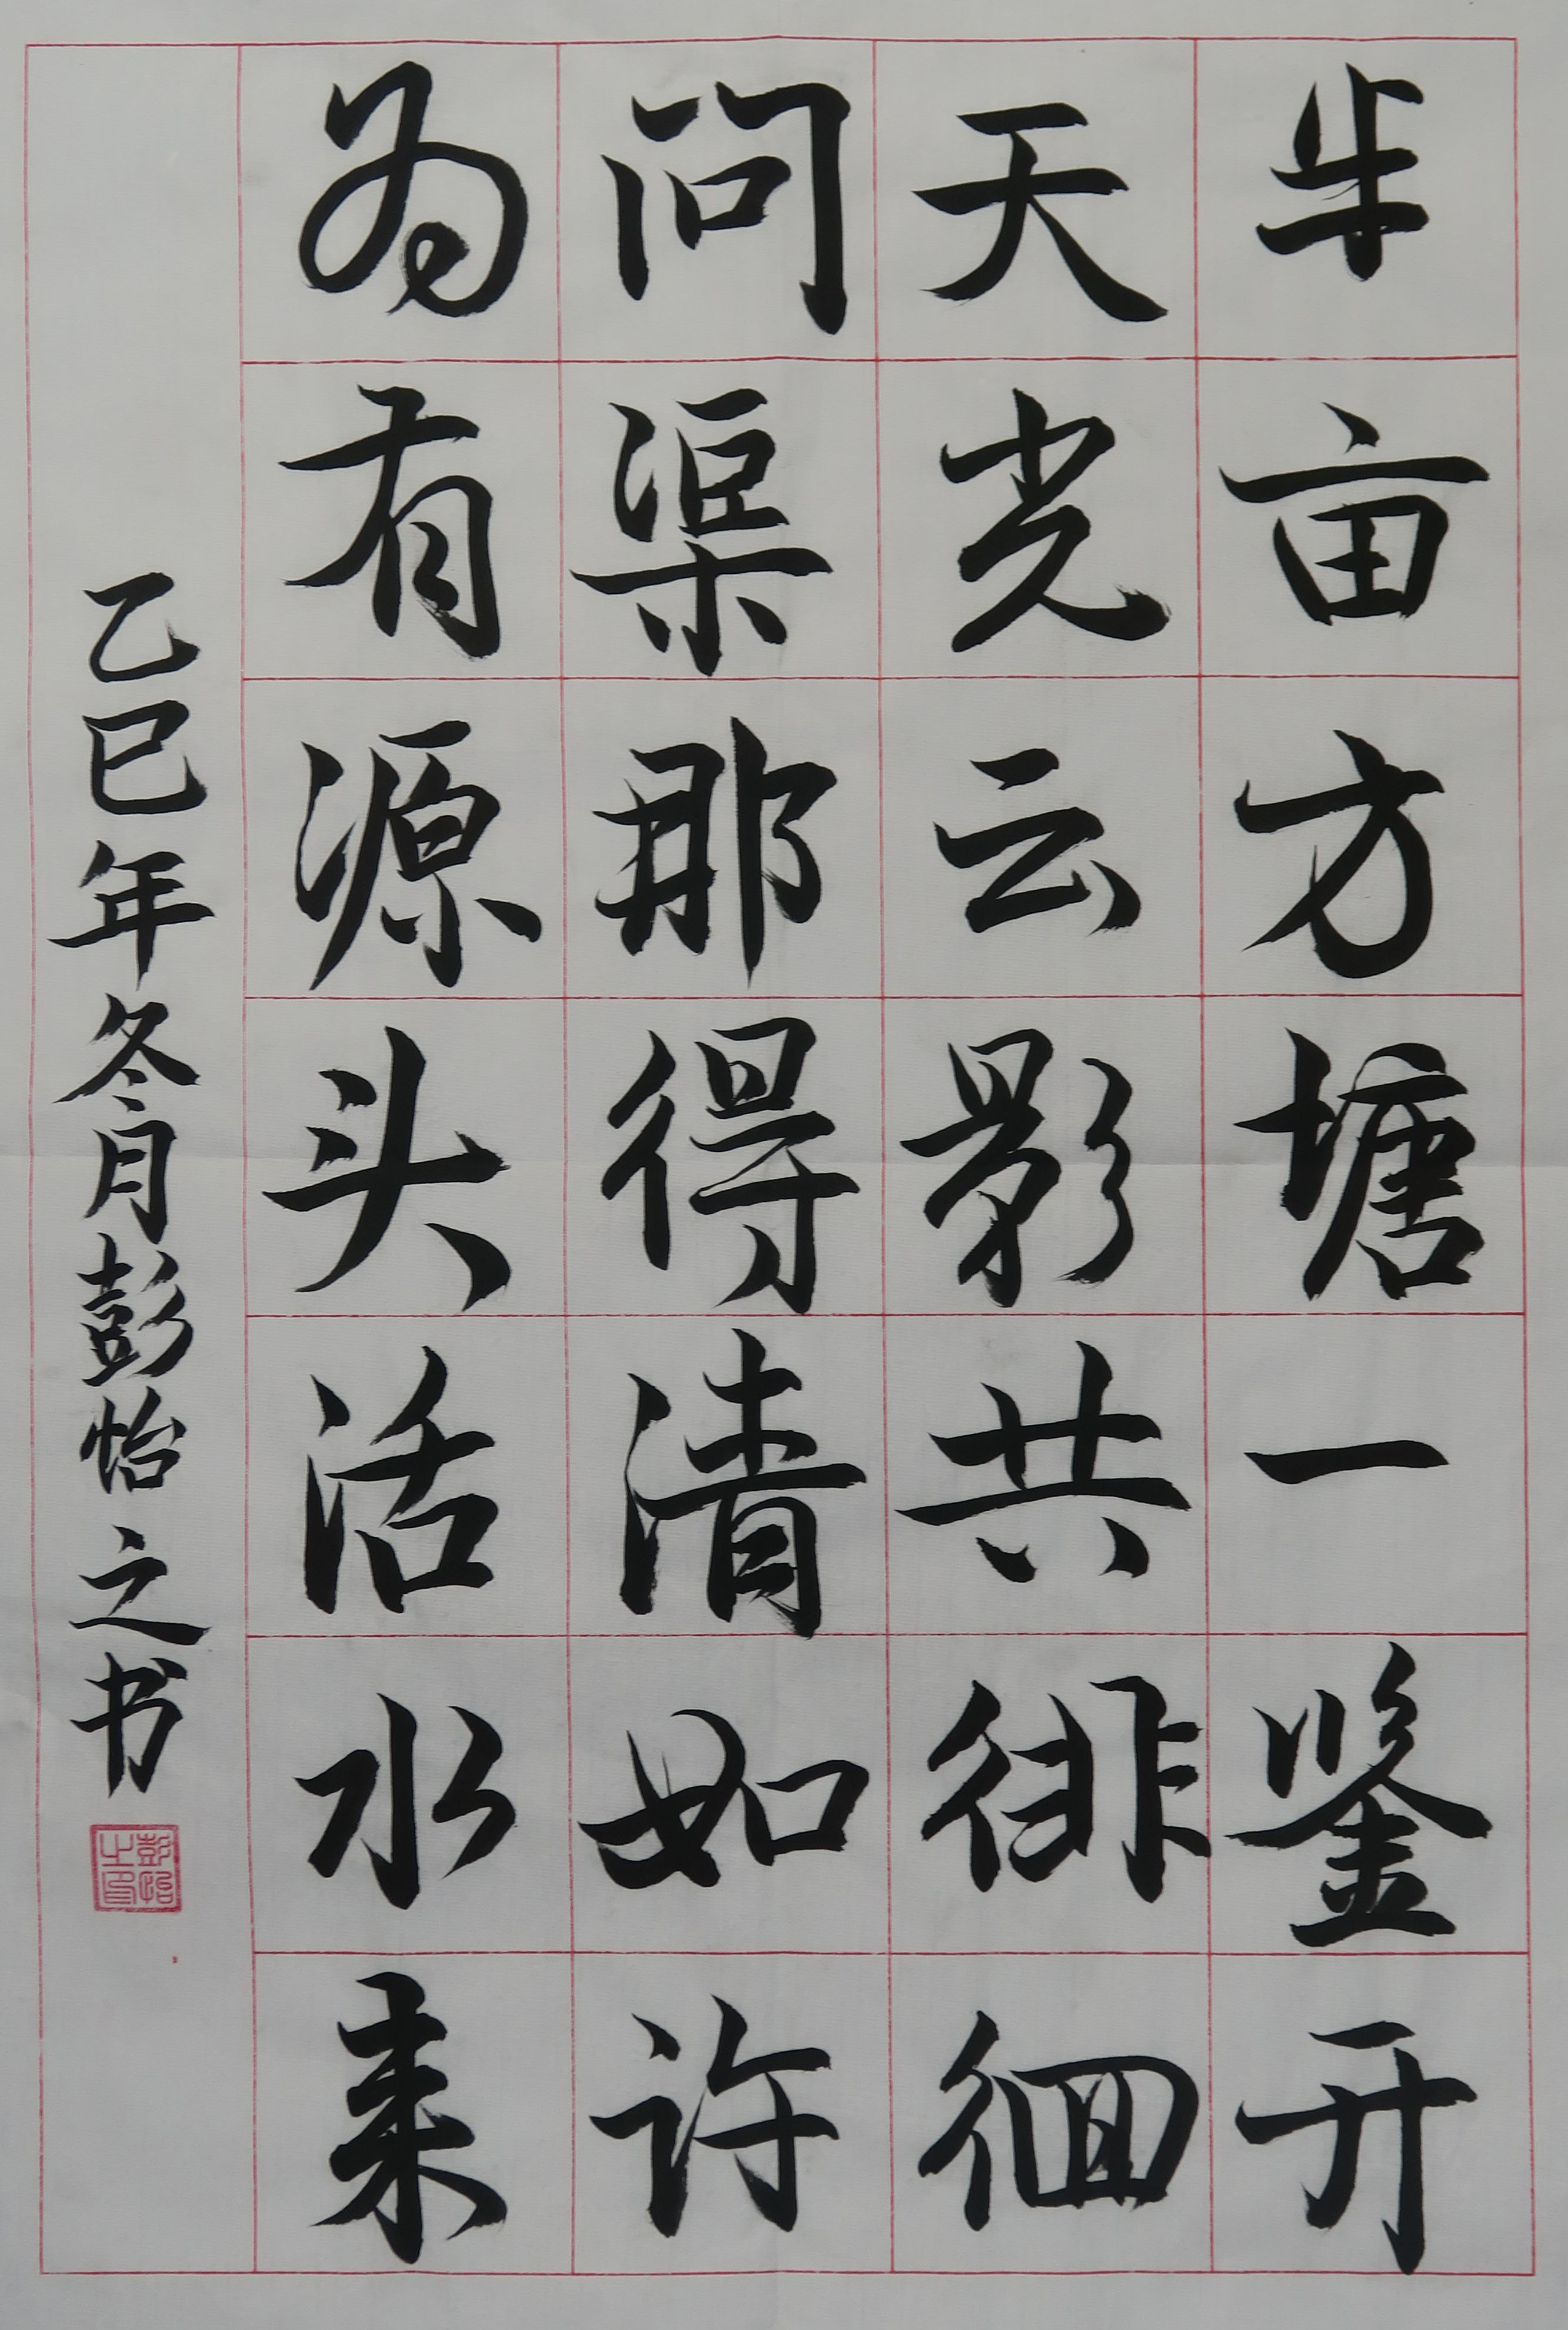 半亩方塘一鉴开
天光云影共徘徊
问渠那得清如许
为有源头活水来
乙巳年冬月彭怡之书
彭怡之印